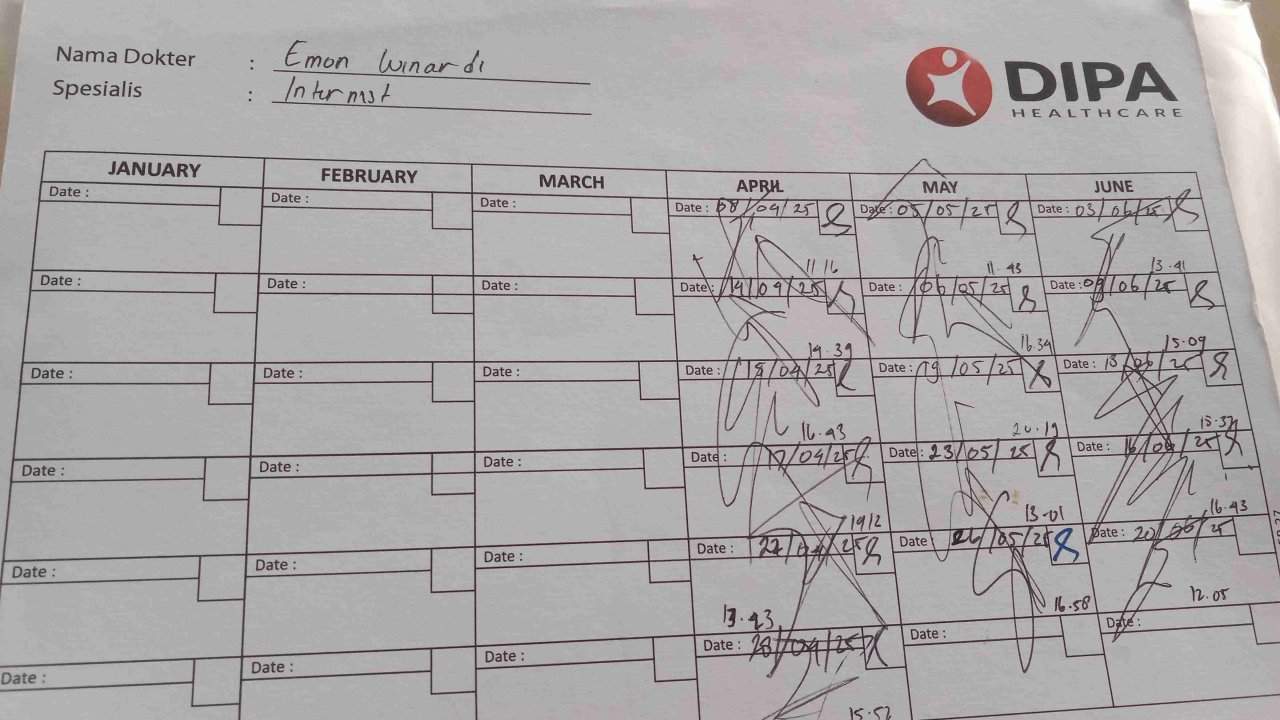 Nama Dokter : Emon Winardi
Spesialis : Internist
DIPA
HEALTHCARE
JANUARY FEBRUARY MARCH APRIL MAY JUNE
Date : Date : Date : Date : 08/04/25 Date : 05/05/25 Date : 03/06/25
11 16 11.43 13.41
Date : Date : Date : Date : 14/04/25 Date : 06/05/25 Date : 09/06/25
14.39 16.34 15.09
Date : Date : Date : Date : 15/04/25 Date : 09/05/25 Date : 13/06/25
16.43 20.19 15.37
Date : Date : Date : Date : 17/04/25 Date : 23/05/25 Date : 16/06/25
1912 13-01 16.43
Date : Date : Date : Date : 22/04/25 Date : 26/05/25 Date : 20/06/25
13.43 16.58 12.05
Date : Date : Date : Date : 28/04/25 Date : Date :
15.52